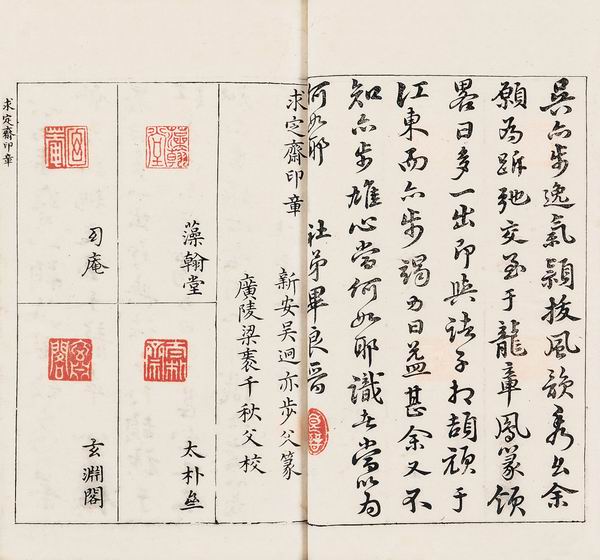 吳亦步逸氣穎拔風韻秀出余
願為跅弛交至于龍章鳳篆領
畧日多一出即與諸子相頡頏于
江東而亦步謁力日益甚余又不
知亦步雄心當何如耶識者當以為
何如耶 社弟畢良晉
良晉
求定齋印章
新安吳迥亦步父篆
廣陵梁袠千秋父校
藻翰堂
藻翰堂
太朴亝
庵
玄淵閣
求定齋印章